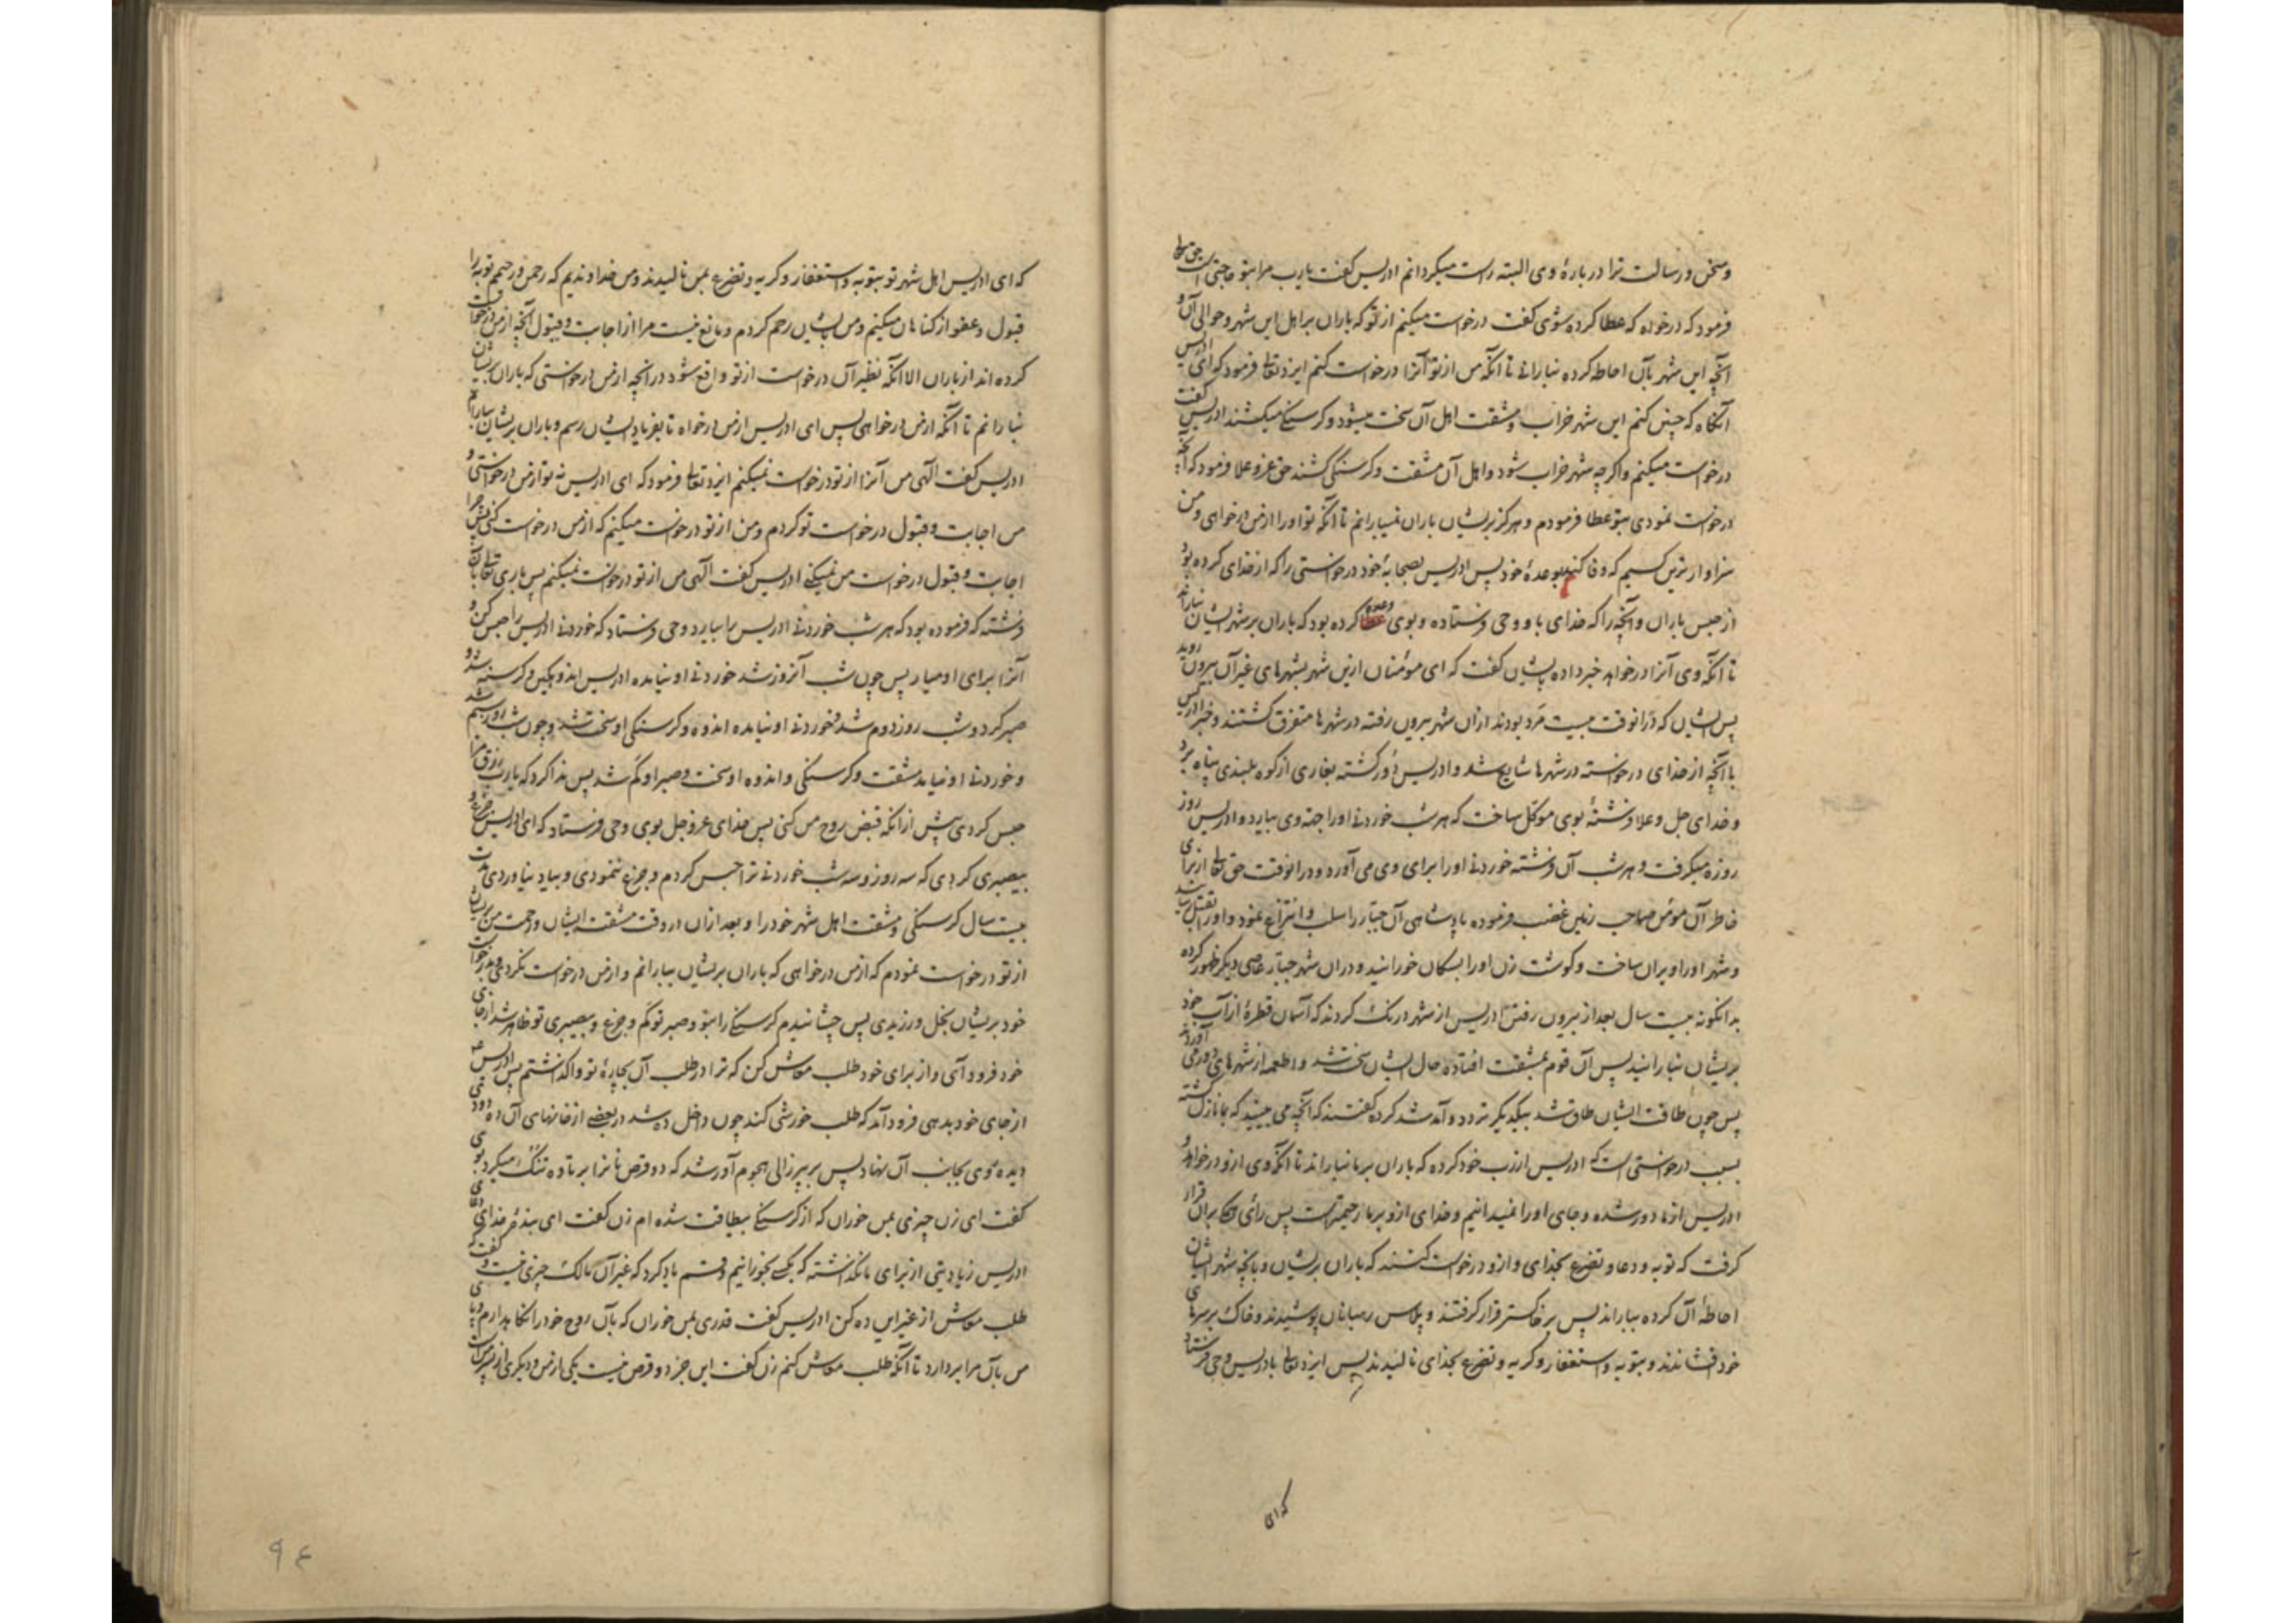 و سخن و رسالت ترا در بارهٔ وی البته راست میگردانم ادریس گفت یارب مرا بتو حاجتی است حق تعالی
فرمود که درخواه که عطا کرده شوی گفت درخواست میکنم از تو که باران بر اهل این شهر و حوالی آن و
آنچه این شهر بآن احاطه کرده نبارانی تا آنکه من از تو آنرا درخواست کنم ایزد تعالی فرمود که ای ادریس
آنگاه که چنین کنم این شهر خراب و مشقت اهل آن سخت میشود و گرسنگی میکشند ادریس گفت
درخواست میکنم و اگرچه شهر خراب شود و اهل آن مشقت و گرسنگی کشند حق عز و علا فرمود که آنچه
درخواست نمودی بتو عطا فرمودم و هرگز بریشان باران نمیبارانم تا آنکه تو او را از من درخواهی و من
سزاوارترین کسیم که وفا کند بوعدهٔ خود پس ادریس بصحابهٔ خود درخواستی را که از خدای کرده بود
از حبس باران و آنچه را که خدای باو وحی فرستاده و بوی وعده کرده بود که باران بر شهر ایشان نباراند
تا آنکه وی آنرا درخواهد خبر داده بایشان گفت که ای مؤمنان ازین شهر بشهرهای غیر آن بیرون روید
پس ایشان که در آنوقت بیست مرد بودند ازان شهر بیرون رفته در شهرها متفرق گشتند و خبر ادریس
با آنچه از خدای درخواسته در شهرها شایع شد و ادریس دور گشته بغاری از کوه بلندی پناه برد
و خدای جل و علا فرشتهٔ بوی موکل ساخت که هر شب خوردنی او را جهة وی بیارد و ادریس روز
روزه میگرفت و هر شب آن فرشته خوردنی او را برای وی می آورد و در آنوقت حق تعالی از برای
خاطر آن مؤمن صاحب زمین غضب فرموده پادشاهی آن جبار را سلب و انتزاع نمود و او را بقتل رسانید
و شهر او را ویران ساخت و گوشت زن او را بسگان خورانید و دران شهر جبار عاصی دیگر ظهور کرده
بدانگونه بیست سال بعد از بیرون رفتن ادریس از شهر درنگ کردند که آسمان قطرهٔ از آب خود
بریشان نبارانید پس آن قوم بمشقت افتاده حال ایشان سخت شد و اطعمه از شهرهای دور می آوردند
پس چون طاقت ایشان طاق شد بیکدیگر تردد و آمد شد کرده گفتند که آنچه می بینید که بما نازل گشته
بسبب درخواستی است که ادریس از رب خود کرده که باران بر ما نباراند تا آنکه وی ازو درخواهد و
ادریس از ما دور شده و جای او را نمیدانیم و خدای ازو بر ما رحیمترست پس رأی همگی بران قرار
گرفت که توبه و دعا و تضرع بخدای و ازو درخواست کنند که باران بریشان و بآنچه شهر ایشان
احاطهٔ آن کرده بباراند پس بر خاکستر قرار گرفتند و پلاس رهبانان پوشیدند و خاک بر سرهای
خود فشاندند و بتوبه و استغفار و گریه و تضرع بخدای نالیدند پس ایزد تعالی بادریس وحی فرستاد
که ای
که ای ادریس اهل شهر تو بتوبه و استغفار و گریه و تضرع بمن نالیدند و من خداوندیم که رحمن و رحیم توبه را
قبول و عفو از گناهان میکنم و من بایشان رحم کردم و مانع نیست مرا از اجابت و قبول آنچه از من درخواست
کرده اند از باران الا آنکه نظیر آن درخواست از تو واقع شود در آنچه از من درخواستی که باران بریشان
نبارانم تا آنکه از من درخواهی پس ای ادریس از من درخواه تا بفریاد ایشان رسم و باران بریشان ببارانم
ادریس گفت الهی من آنرا از تو درخواست نمیکنم ایزد تعالی فرمود که ای ادریس نه تو از من درخواستی و
من اجابت و قبول درخواست تو کردم و من از تو درخواست میکنم که از من درخواست کنی پس چرا
اجابت و قبول درخواست من نمیکنی ادریس گفت الهی من از تو درخواست نمیکنم پس باری تعالی بآن
فرشته که فرموده بود که هر شب خوردنی ادریس را بیارد وحی فرستاد که خوردنی ادریس را حبس کن و
آنرا برای او میار پس چون شب آنروز شد خوردنی او نیامده ادریس اندوهگین و گرسنه شد و
صبر کرد و شب روز دوم شد و خوردنی او نیامده اندوه و گرسنگی او سخت شد و چون شب روز سیم شد
و خوردنی او نیامد مشقت و گرسنگی و اندوه او سخت و صبر او کم شد پس ندا کرد که یارب رزق مرا
حبس کردی پیش از آنکه قبض روح من کنی پس خدای عز و جل بوی وحی فرستاد که ای ادریس جزع و
بیصبری کردی که سه روز و سه شب خوردنی ترا حبس کردم و جزع ننمودی و بیاد نیاوردی مدت
بیست سال گرسنگی و مشقت اهل شهر خود را و بعد ازان در وقت مشقت ایشان و رحمت من بریشان
از تو درخواست نمودم که از من درخواهی که باران بریشان ببارانم و از من درخواست نکردی و بدرخواست
خود بریشان بخل ورزیدی پس چشانیدم گرسنگی را بتو و صبر تو کم و جزع و بیصبری تو ظاهر شد از جای
خود فرود آی و از برای خود طلب معاش کن که ترا در طلب آن بچارهٔ تو واگذاشتم پس ادریس ع
از جای خود بدهی فرود آمد که طلب خورشی کند چون داخل ده شد در بعضی از خانهای آن ده دودی
دیده روی بجانب آن نهاد پس بر پیرزالی هجوم آور شد که دو قرص نانرا بر تاوه تنک میکرد بوی
گفت ای زن چیزی بمن خوران که از گرسنگی بیطاقت شده ام زن گفت ای بندهٔ خدای دعای
ادریس زیادیتی از برای ما نگذاشته که بکسی بخورانیم و قسم یاد کرد که غیر آن مالک چیزی نیست و گفت که
طلب معاش از غیر این ده کن ادریس گفت قدری بمن خوران که بآن روح خود را نگاه بدارم و پای
من بآن مرا بردارد تا آنکه طلب معاش کنم زن گفت این جز دو قرص نیست یکی از من و دیگری از پسر من
۹۴